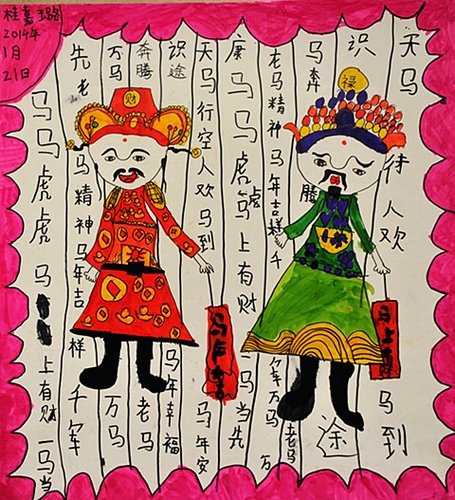 桂嘉璐
2014年
1月
21日
马马虎虎马上有财一马当
先老马精神马年吉祥千军
万马万马
奔腾老马
识途马年幸福
天马行空人欢马到马年安
康马马虎虎马上有财一马当先万
老马精神马年吉祥千军万马老马
马奔腾
识途
天马待人欢马到
财
禄